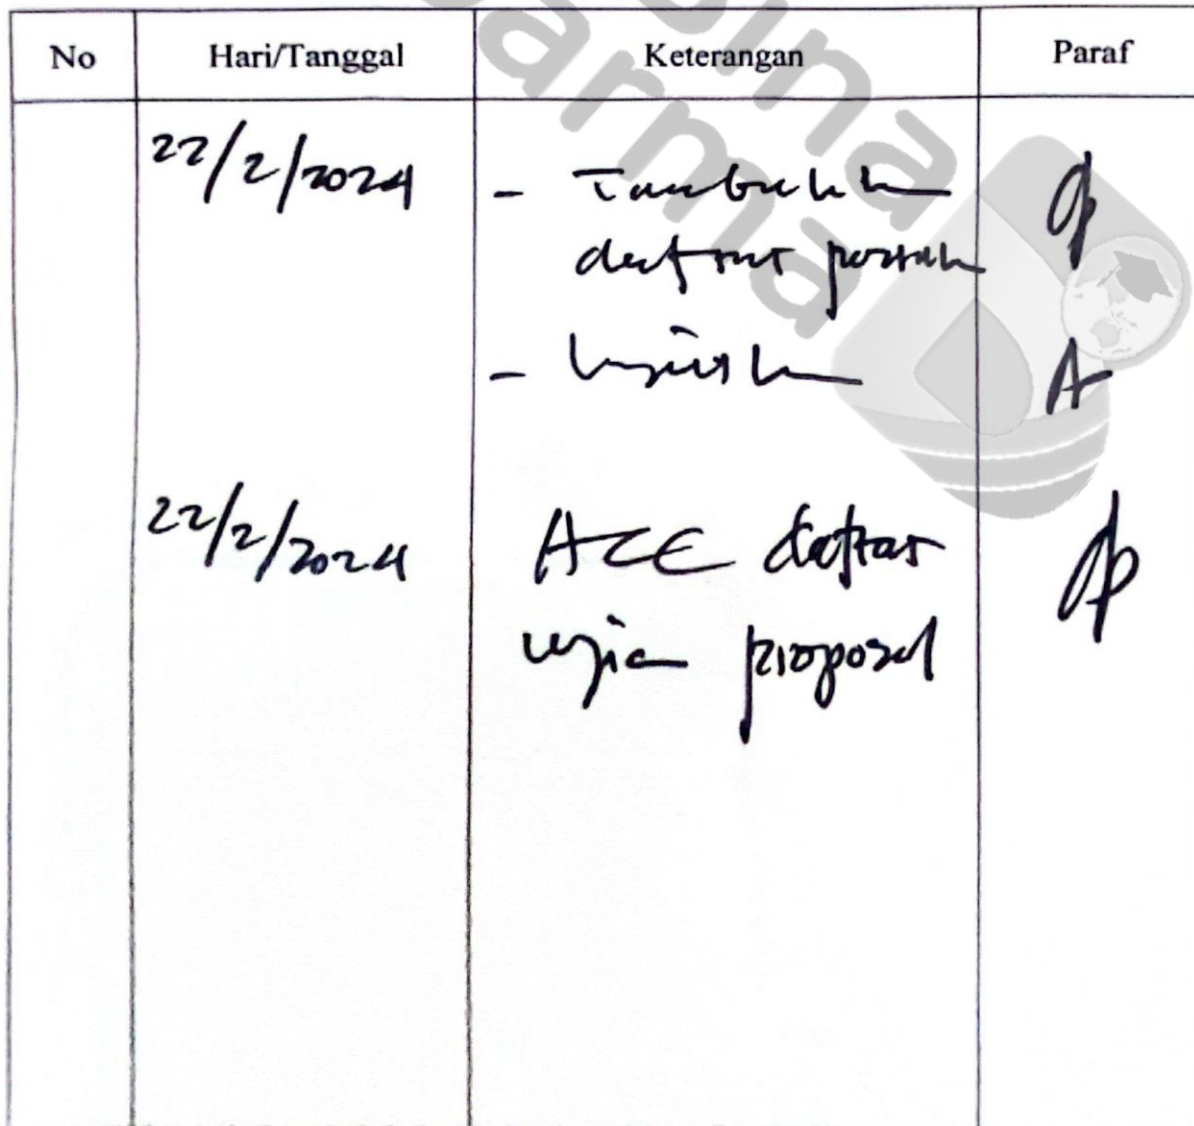 bina
darma
No Hari/Tanggal Keterangan Paraf
22/2/2024 - Tambahkan
daftar pustak
-
22/2/2024 ACC daftar
ujian proposal